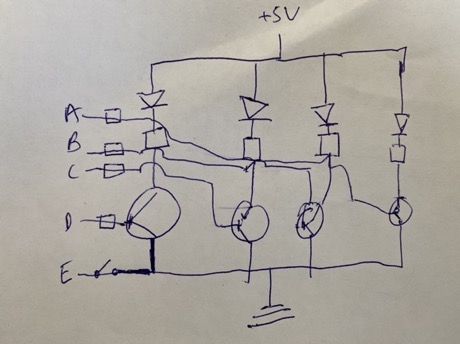 +5V
A
B
C
D
E